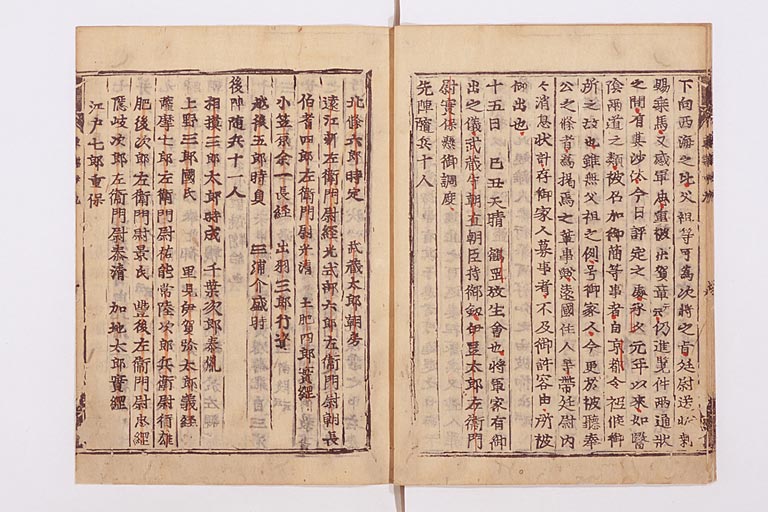 下向西海之比父祖等可爲次將之旨廷尉送狀剩
賜乘馬又感軍忠重被成賀章云仍進覽件兩通狀
之間有其沙汰今日評定之處承久元年以來如醫
陰兩道之類被召加御簡等事者自京都令祗候御
所之故也雖無父祖之例号御家人今更爲被聽奉
公之條者爲揭焉之輩歟遠國住人等帶廷尉內
々消息狀計存御家人募事者不及御許容由所被
仰出也
十五日 己丑天晴 鶴罡放生會也將軍家有御
出之儀武藏守朝直朝臣持御釼伊豆太郎左衛門
尉實保懸御調度
先陣隨兵十一人
北條六郎時定 武藏太郎朝房
遠江新左衛門尉經光 式部六郎左衛門尉朝長
伯耆四郎左衛門尉光清 土肥四郎實經
小笠原余一長經 出羽三郎行資
越後五郎時員 三浦介盛時
後陣隨兵十一人
相摸三郎太郎時成 千葉次郎泰胤
上野三郎國氏 里見伊賀弥太郎義經
薩摩七郎左衛門尉祐能 常陸次郎兵衛尉行雄
肥後次郎左衛門尉景氏 豐後左衛門尉忠經
隱岐次郎左衛門尉泰清 加地太郎實經
江戸七郎重保